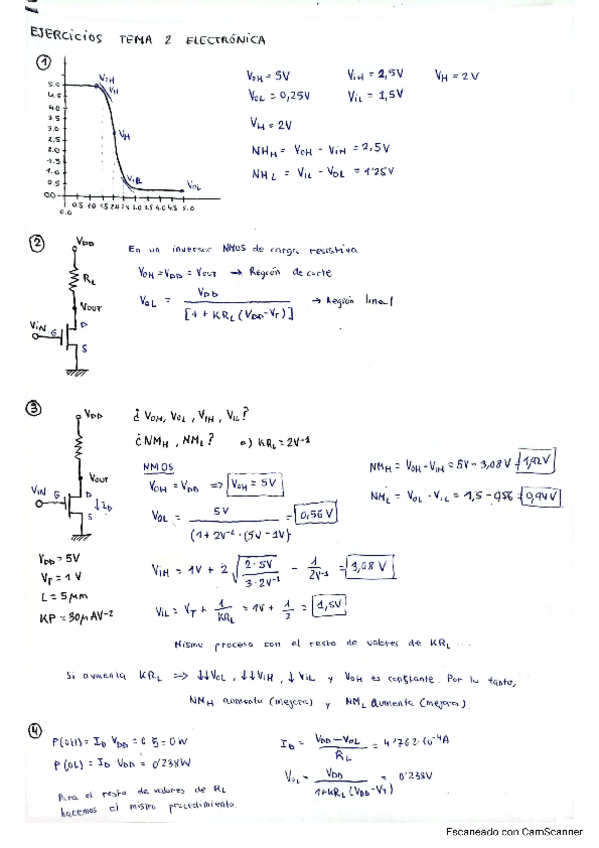 EJERCICIOS TEMA 2 ELECTRÓNICA
1
VOH
VH
VIL
VOL
5.0
4.5
4.0
3.5
3.0
2.5
2.0
1.5
1.0
0.5
0.0
0.0 0.5 1.0 1.5 2.0 2.5 3.0 3.5 4.0 4.5 5.0
VOH = 5V VIH = 2,5V VH = 2V
VOL = 0,25V VIL = 1,5V
VH = 2V
NHH = VOH - VIH = 2,5V
NHL = VIL - VOL = 1'25V
2
VDD
RL
VOUT
VIN G D
S
En un inversor NMOS de carga resistiva
VOH = VDD = VOUT → Región de corte
VOL = VDD / [1 + KRL (VDD-VT)] → Región lineal
3
VDD
VOUT
VIN G D ↓ID
S
VDD = 5V
VT = 1V
L = 5μm
KP = 30μAV-2
¿ VOH, VOL, VIH, VIL?
¿ NMH, NML? a) KRL = 2V-1
NMOS
VOH = VDD => VOH = 5V
VOL = 5V / (1 + 2V-1 · (5V - 1V)) = 0,56V
VIH = 1V + 2 √(2·5V / 3·2V-1) - 1/2V-1 = 3,08V
VIL = VT + 1/KRL = 1V + 1/2 = 1,5V
NMH = VOH - VIH = 5V - 3,08V = 1,92V
NML = VOL - VIL = 1,5 - 0,56 = 0,94V
Mismo proceso con el resto de valores de KRL ...
Si aumenta KRL => ↓↓VOL, ↓↓VIH, ↓VIL y VOH es constante. Por lo tanto,
NMH aumenta (mejora) y NML aumenta (mejora).
4
P(OH) = ID VDD = 0·5 = 0W
P(OL) = ID · VDD = 0'238W
Para el resto de valores de RL
hacemos el mismo procedimiento.
ID = VDD - VOL / RL = 4'762·10-4A
VOL = VDD / 1+KRL(VDD-VT) = 0'238V
Escaneado con CamScanner